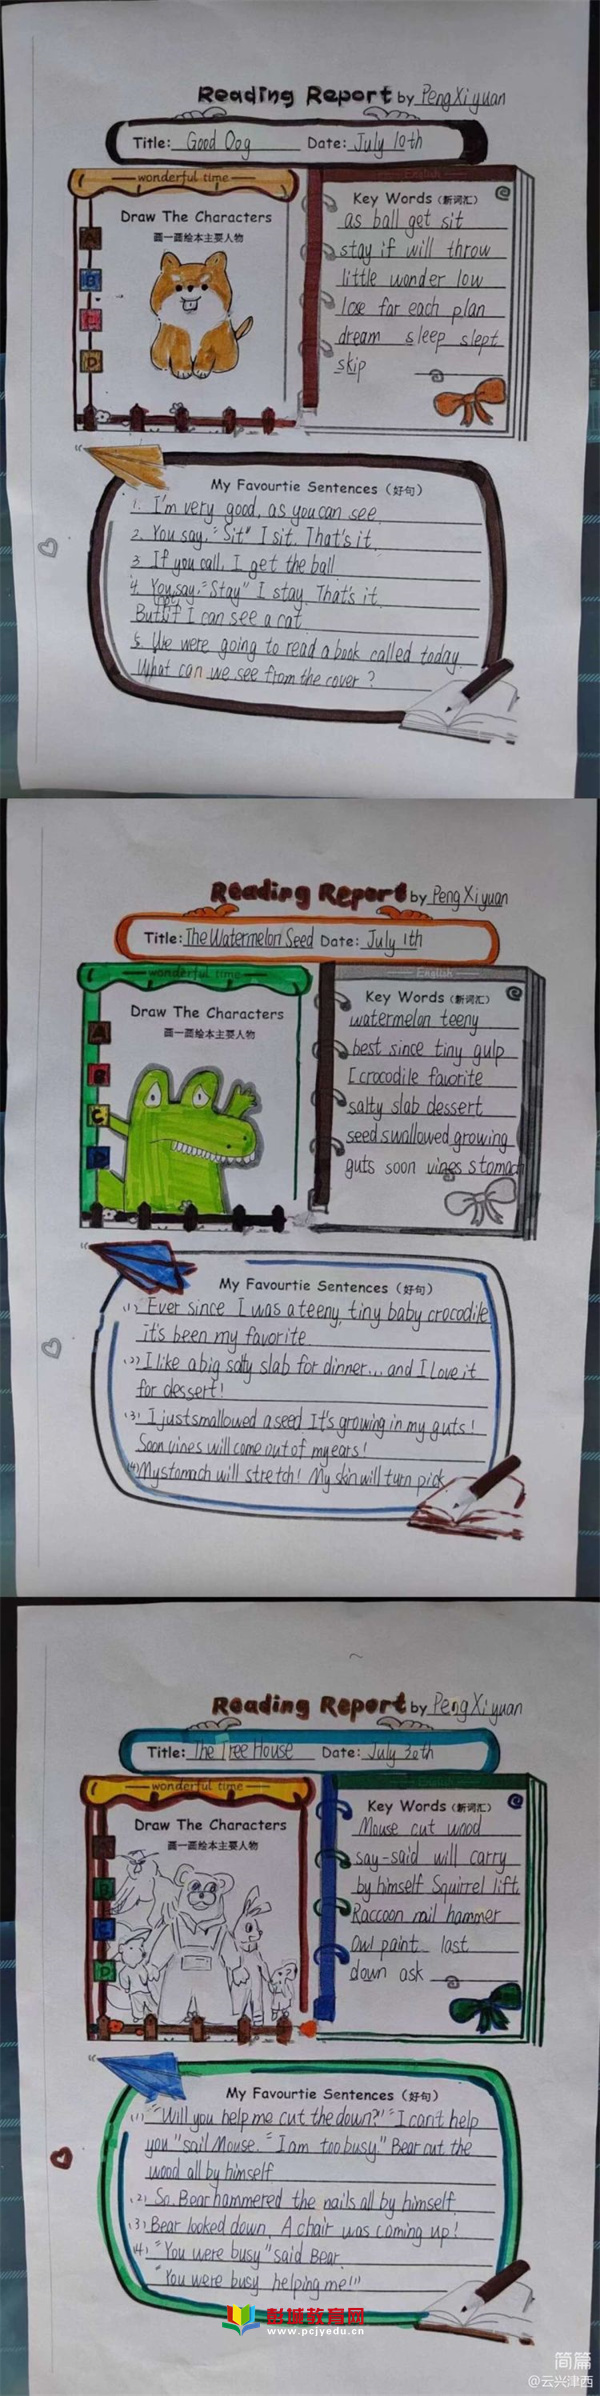 Reading Report by Peng Xi yuan
Title: Good Oog Date: July 10th
wonderful time
English
Draw The Characters
画一画绘本主要人物
A
B
C
D
Key Words (新词汇)
as ball get sit
stay if will throw
little wonder low
lose far each plan
dream sleep slept
skip
My Favourtie Sentences (好句)
1. I'm very good, as you can see.
2. You say, "Sit" I sit. That's it.
3. If you call, I get the ball
4. You say, "Stay" I stay. That's it.
But if I can see a cat
5. We were going to read a book called today.
What can we see from the cover?
Reading Report by Peng Xi yuan
Title: The Watermelon Seed Date: July 1th
wonderful time
English
Draw The Characters
画一画绘本主要人物
A
B
C
D
Key Words (新词汇)
watermelon teeny
best since tiny gulp
I crocodile favorite
salty slab dessert
seed swallowed growing
guts soon vines stomach
My Favourtie Sentences (好句)
(1) Ever since I was a teeny, tiny baby crocodile
it's been my favorite
(2) I like a big salty slab for dinner... and I love it
for dessert!
(3) I just smallowed a seed It's growing in my guts!
Soon vines will come out of my ears!
(4) My stomach will stretch! My skin will turn pick
Reading Report by Peng Xi yuan
Title: The Tree House Date: July 30th
wonderful time
English
Draw The Characters
画一画绘本主要人物
A
B
C
D
Key Words (新词汇)
Mouse cut wood
say-said will carry
by himself Squirrel lift
Raccoon nail hammer
Owl paint last
down ask
My Favourtie Sentences (好句)
(1) "Will you help me cut the down?" "I can't help
you" sail Mouse. "I am too busy." Bear cut the
wood all by himself
(2) So Bear hammered the nails all by himself
(3) Bear looked down, A chair was coming up!
(4) "You were busy" said Bear.
"You were busy helping me!"
彭城教育网
www.pcjyedu.cn
简篇
@云兴津西